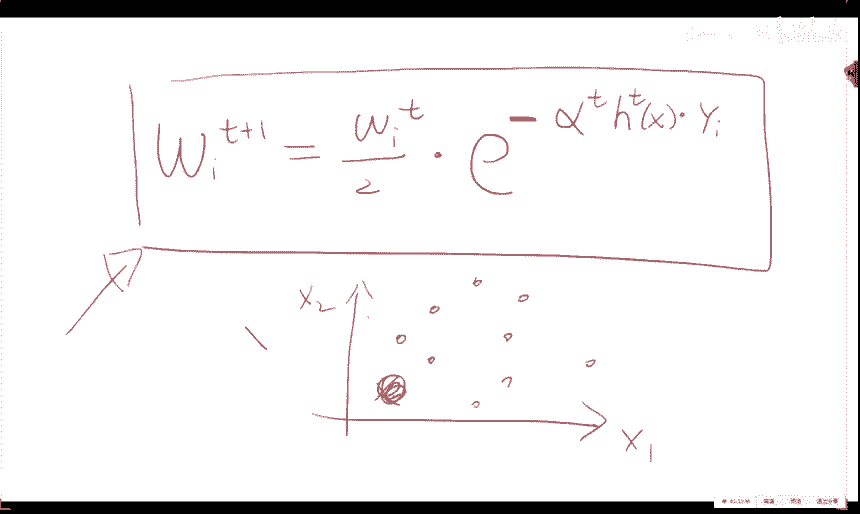 W_i^{t+1} = \frac{w_i^t}{2} · e^{- α^t h^t(x)· y_i}
X_2
X_1